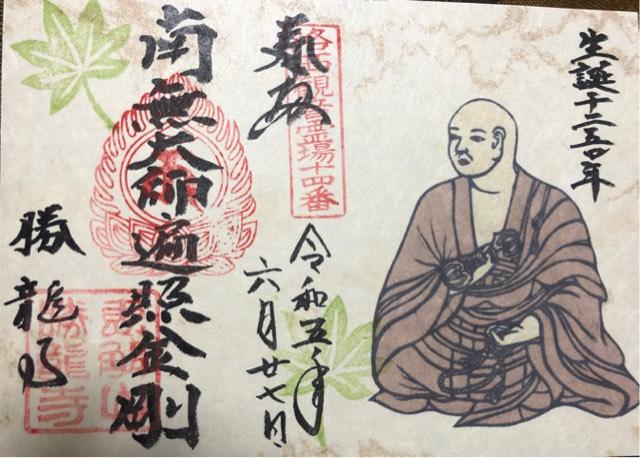 生誕千二百五十年
奉拝
洛西観音霊場十四番
令和五年
六月廿七日
南無大師遍照金剛
勝龍寺
恵解山
勝龍寺